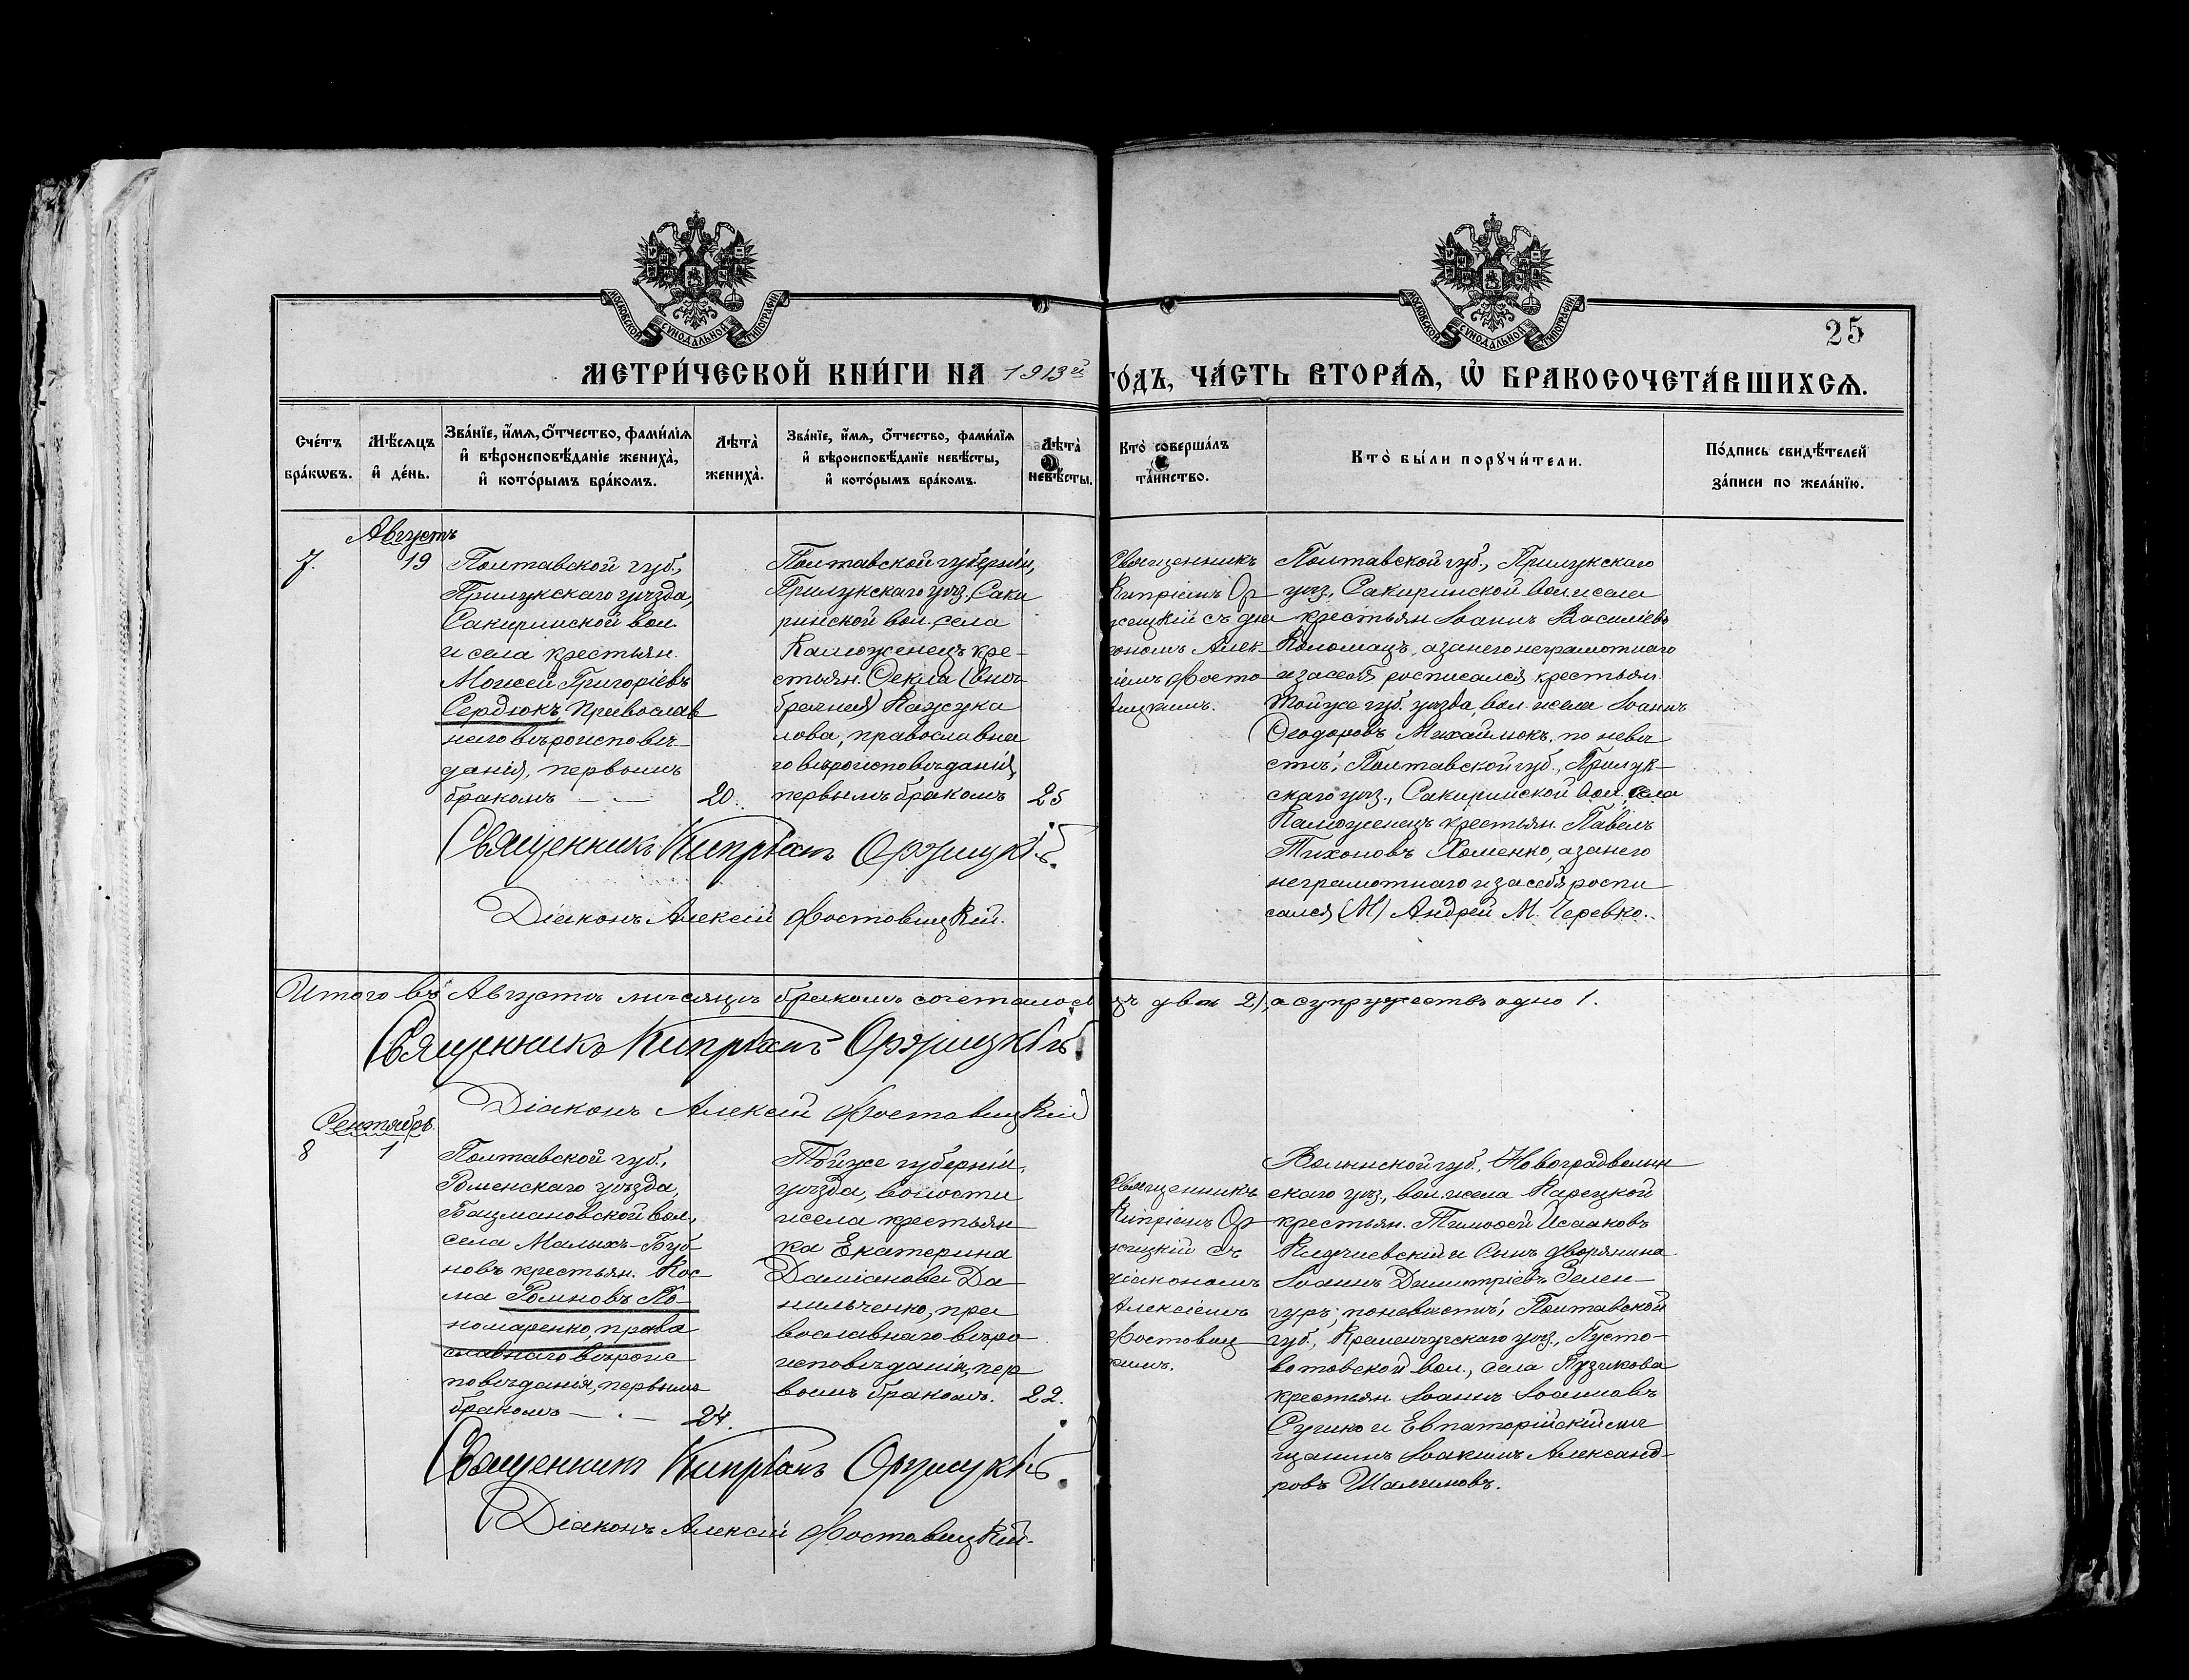 МОСКОВСКОЙ СѴНОДАЛЬНОЙ ТИПОГРАФІИ
МОСКОВСКОЙ СѴНОДАЛЬНОЙ ТИПОГРАФІИ
25
МЕТРИ́ЧЕСКОЙ КНИ́ГИ НА 1913й
ГО́ДЪ, ЧА́СТЬ ВТОРА́Ѧ, Ѡ҆ БРАКОСОЧЕТА́ВШИХСѦ.
Сче́тъ
бра́кѡвъ.
Мѣ́сѧцъ
и҆ де́нь.
Зва́нїе, и҆́мѧ, ѻ҆́тчество, фами́лїѧ
и҆ вѣроисповѣ́данїе жениха̀,
и҆ кото́рымъ бра́комъ.
Лѣта̀
жениха̀.
Зва́нїе, и҆́мѧ, ѻ҆́тчество, фами́лїѧ
и҆ вѣроисповѣ́данїе невѣ́сты,
и҆ кото́рымъ бра́комъ.
Лѣта̀
невѣ́сты.
Кто̀ соверша́лъ
та́инство.
Кто̀ бы́ли порꙋчи́тели.
По́дпись свидѣ́телей
за́писи по жела́нїю.
Августъ
7. 19
Полтавской губ.,
Прилукскаго уѣзда,
Сакиринской вол.
и села крестьян.
Моисей Григоріевъ
Сердюкъ, православ
наго вѣроисповѣ-
данія, первымъ
бракомъ — · — 20.
Полтавской губерніи,
Прилукскаго уѣз. Саки
ринской вол. села
Калюженецъ кре-
стьян. Ѳекла (внѣ-
брачная)
лова, православна
го вѣроисповѣданія,
первымъ бракомъ 25
Священникъ
Кипріанъ Ор
жицкій съ діа
кономъ Алек-
сіемъ Фосто-
вицкимъ.
Полтавской губ., Прилукскаго
уѣз., Сакиринской вол. и села
крестьян Іоаннъ Василіевъ
Коломацъ, а за него неграмотнаго
и за себя росписался крестьян.
той уже губ. уѣзда, вол. и села Іоаннъ
Ѳеодоровъ Михайлюкъ. по невѣ
стѣ: Полтавской губ., Прилук-
скаго уѣз., Сакиринской вол., села
Калюженецъ крестьян. Павелъ
Тихоновъ Хоменко, а за него
неграмотнаго и за себя роспи
сался (М) Андрей М. Черевко.
Священникъ Кипріанъ Оржицкій.
Діаконъ Алексій Фостовицкій.
Итого въ Августѣ мѣсяцѣ бракомъ сочеталось лицъ два 2), а супружествъ одно 1.
Священникъ Кипріанъ Оржицкій
Діаконъ Алексій Фостовицкій
Сентябрь
8 1
Полтавской губ.,
Роменскаго уѣзда,
Бацмановской вол.,
села Малыхъ-Буб-
новъ крестьян. Кос
ма Романовъ По-
номаренко, право
славнаго вѣроис
повѣданія, первымъ
бракомъ — · — 24.
Той уже губерніи,
уѣзда, волости
и села крестьян
ка Екатерина
Даміанова Да-
нильченко, пра
вославнаго вѣро
исповѣданія, пер
вымъ бракомъ. 22.
Священникъ
Кипріанъ Ор-
жицкій съ
діакономъ
Алексіемъ
Фостовиц-
кимъ.
Волынской губ., Новоградволын
скаго уѣз., вол. и села Карецкой
крестьян. Тимоѳей Исааковъ
и Сынъ дворянина
Іоаннъ Димитріевъ Зелен-
гуръ; по невѣстѣ: Полтавской
губ., Кременчугскаго уѣз., Пусто-
вотовской вол., села Пузикова
крестьян Іоаннъ Іоанновъ
и Евпаторійскій мѣ
щанинъ Іоакимъ Александ-
ровъ Шалимовъ.
Священникъ Кипріанъ Оржицкій
Діаконъ Алексій Фостовицкій.